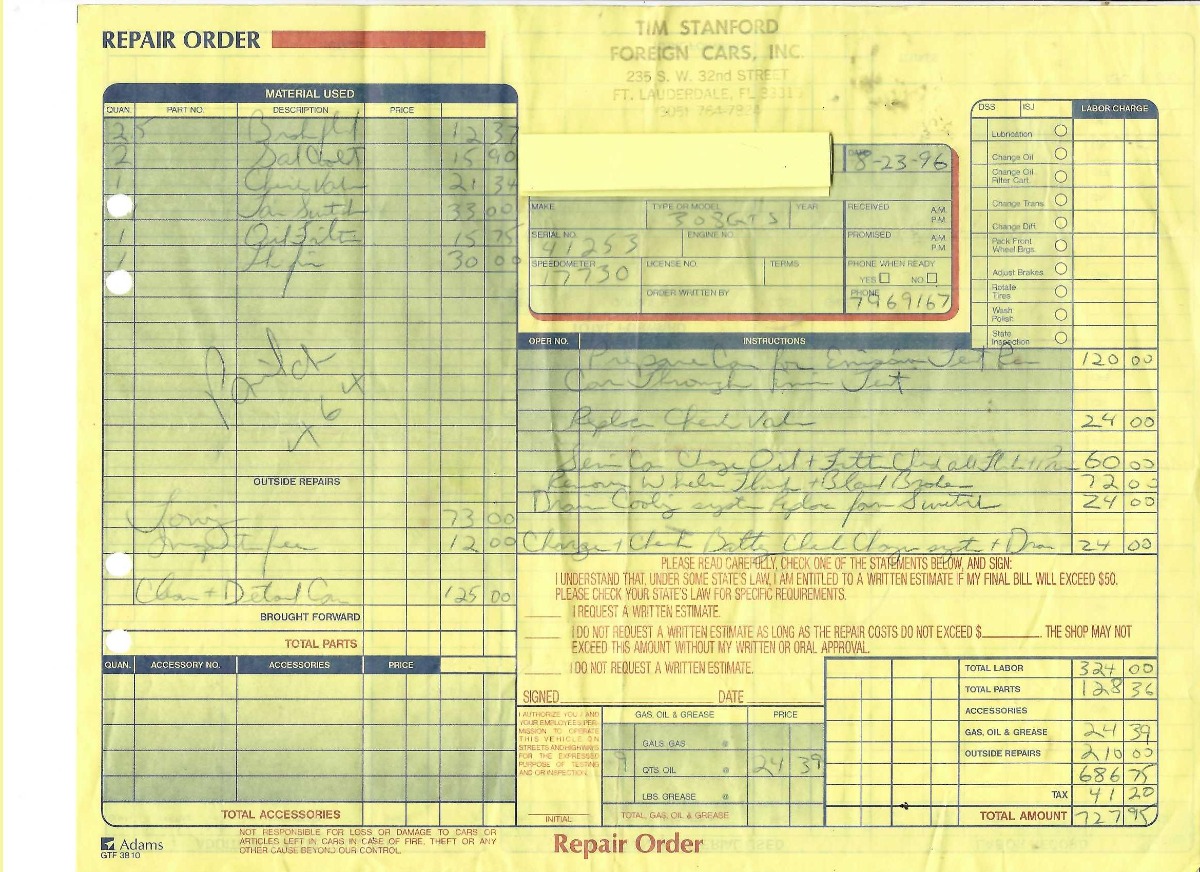 REPAIR ORDER
TIM STANFORD
FOREIGN CARS, INC.
235 S. W. 32nd STREET
FT. LAUDERDALE, FL
(305) 764-7924
MATERIAL USED
QUAN. PART NO. DESCRIPTION PRICE
2 12 37
2 15 90
1 21 34
Fan Switch 33 00
1 Oil Filter 15 75
1 30 00
OUTSIDE REPAIRS
Towing 73 00
Inspection fee 12 00
Clean + Detail Car 125 00
BROUGHT FORWARD
TOTAL PARTS
QUAN. ACCESSORY NO. ACCESSORIES PRICE
TOTAL ACCESSORIES
DATE 8-23-96
MAKE TYPE OR MODEL 308GTS YEAR RECEIVED A.M. P.M.
SERIAL NO. 41253 ENGINE NO. PROMISED A.M. P.M.
SPEEDOMETER 17730 LICENSE NO. TERMS PHONE WHEN READY YES NO
ORDER WRITTEN BY PHONE 7969167
DSS ISJ LABOR CHARGE
Lubrication
Change Oil
Change Oil Filter Cart.
Change Trans.
Change Diff.
Pack Front Wheel Brgs.
Adjust Brakes
Rotate Tires
Wash Polish
State Inspection
OPER NO. INSTRUCTIONS
Prepare Car for Emission Test 120 00
Car Through Test
Replace Check Valve 24 00
Car Change Oil + Filter 60 00
72 00
Drain Cooling system Replace fan Switch 24 00
Charge + Check Battery Check system + 24 00
PLEASE READ CAREFULLY, CHECK ONE OF THE STATEMENTS BELOW, AND SIGN:
I UNDERSTAND THAT, UNDER SOME STATE'S LAW, I AM ENTITLED TO A WRITTEN ESTIMATE IF MY FINAL BILL WILL EXCEED $50.
PLEASE CHECK YOUR STATE'S LAW FOR SPECIFIC REQUIREMENTS.
I REQUEST A WRITTEN ESTIMATE.
I DO NOT REQUEST A WRITTEN ESTIMATE AS LONG AS THE REPAIR COSTS DO NOT EXCEED $ . THE SHOP MAY NOT
EXCEED THIS AMOUNT WITHOUT MY WRITTEN OR ORAL APPROVAL.
I DO NOT REQUEST A WRITTEN ESTIMATE.
SIGNED DATE
I AUTHORIZE YOU / AND
YOUR EMPLOYEES PER-
MISSION TO OPERATE
THIS VEHICLE ON
STREETS AND HIGHWAYS
FOR THE EXPRESSED
PURPOSE OF TESTING
AND OR INSPECTION.
INITIAL
GAS, OIL & GREASE PRICE
GALS. GAS @
9 QTS. OIL @ 24 39
LBS. GREASE @
TOTAL GAS, OIL & GREASE
TOTAL LABOR 324 00
TOTAL PARTS 128 36
ACCESSORIES
GAS, OIL & GREASE 24 39
OUTSIDE REPAIRS 210 00
686 75
TAX 41 20
TOTAL AMOUNT 727 95
Adams
GTF 3810
NOT RESPONSIBLE FOR LOSS OR DAMAGE TO CARS OR
ARTICLES LEFT IN CARS IN CASE OF FIRE, THEFT OR ANY
OTHER CAUSE BEYOND OUR CONTROL.
Repair Order